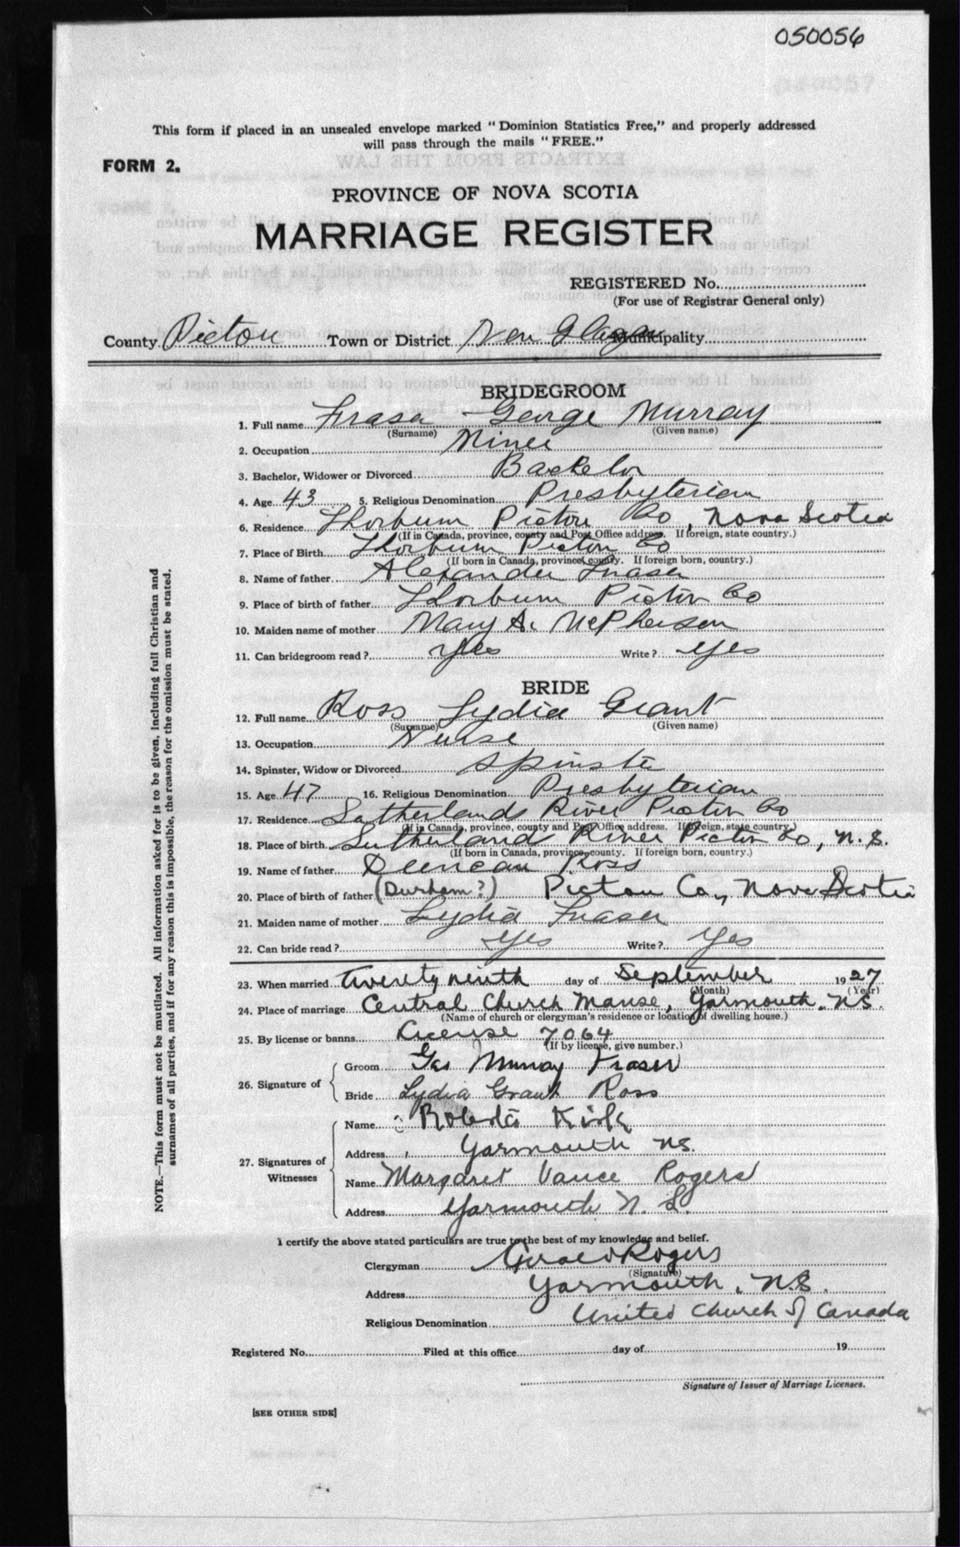 050056
This form if placed in an unsealed envelope marked "Dominion Statistics Free," and properly addressed
will pass through the mails "FREE."
FORM 2.
PROVINCE OF NOVA SCOTIA
MARRIAGE REGISTER
REGISTERED No.
(For use of Registrar General only)
County Pictou Town or District New Glasgow Municipality
BRIDEGROOM
1. Full name Fraser George Murray
(Surname) (Given name)
2. Occupation Miner
3. Bachelor, Widower or Divorced Bachelor
4. Age 43 5. Religious Denomination Presbyterian
6. Residence Thorburn Pictou Co, Nova Scotia
(If in Canada, province, county and Post Office address. If foreign, state country.)
7. Place of Birth Thorburn Pictou Co
(If born in Canada, province, county. If foreign born, country.)
8. Name of father Alexander Fraser
9. Place of birth of father Thorburn Pictou Co
10. Maiden name of mother Mary A. McPherson
11. Can bridegroom read? yes Write? yes
BRIDE
12. Full name Ross Lydia Grant
(Surname) (Given name)
13. Occupation Nurse
14. Spinster, Widow or Divorced Spinster
15. Age 47 16. Religious Denomination Presbyterian
17. Residence Sutherlands River Pictou Co
(If in Canada, province, county and Post Office address. If foreign, state country.)
18. Place of birth Sutherlands River Pictou Co, N.S.
(If born in Canada, province, county. If foreign born, country.)
19. Name of father Duncan Ross
20. Place of birth of father (Durham?) Pictou Co., Nova Scotia
21. Maiden name of mother Lydia Fraser
22. Can bride read? yes Write? yes
23. When married twenty ninth day of September 1927
(Month) (Year)
24. Place of marriage Central Church Manse, Yarmouth. N.S.
(Name of church or clergyman's residence or location of dwelling house.)
25. By license or banns License 7064
(If by license, give number.)
26. Signature of Groom Geo Murray Fraser
Bride Lydia Grant Ross
27. Signatures of Witnesses Name Roberta Kirk
Address Yarmouth NS.
Name Margaret Vance Rogers
Address Yarmouth N. S.
I certify the above stated particulars are true to the best of my knowledge and belief.
Clergyman Gerald Rogers
(Signature)
Address Yarmouth, N.S.
Religious Denomination United Church of Canada
Registered No. Filed at this office day of 19
Signature of Issuer of Marriage Licenses.
[SEE OTHER SIDE]
NOTE.—This form must not be mutilated. All information asked for is to be given, including full Christian and
surnames of all parties, and if for any reason this is impossible, the reason for the omission must be stated.